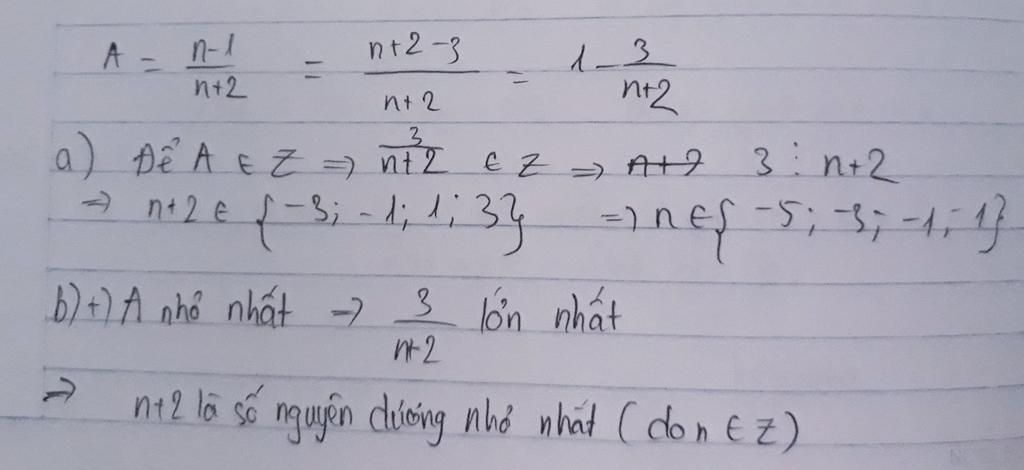 A = n-1/n+2 = n+2-3/n+2 = 1 - 3/n+2
a) Để A ∈ Z => 3/n+2 ∈ Z => n+2 3 ⋮ n+2
=> n+2 ∈ {-3; -1; 1; 3} => n ∈ {-5; -3; -1; 1}
b) +) A nhỏ nhất -> 3/n+2 lớn nhất
=> n+2 là số nguyên dương nhỏ nhất (do n ∈ Z)